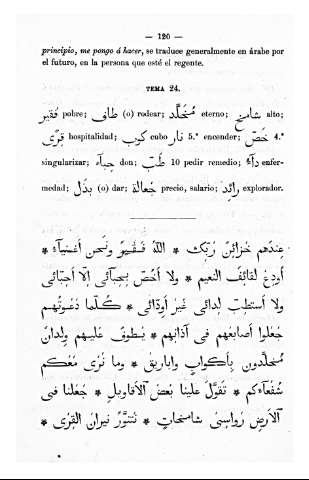 — 120 —
principio, me pongo á hacer, se traduce generalmente en árabe por
el futuro, en la persona que esté el regente.
TEMA 24.
فقير pobre; طاف (o) rodear; مخلّد eterno; شامخ alto;
قرى hospitalidad; كوب cubo نار 5.ª encender; خصّ 4.ª
singularizar; حباء don; طبّ 10 pedir remedio; داء enfer-
medad; بذل (o) dar; جعالة precio, salario; رائد explorador.
عندهم خزائن ربّك * الله فقير ونحن أغنياء *
النعيم * ولا أخصّ بحبائى إلّا أحبّائى
ولا أستطبّ لدائى غير أودّائى * كلّما دعوتهم
جعلوا أصابعهم فى آذانهم * يطوف عليهم ولدان
مخلّدون بأكواب واباريق * وما نرى معكم
شفعاءكم * تقوّل علينا بعض الأقاويل * جعلنا فى
الأرض رواسى شامخات * نيران القرى *